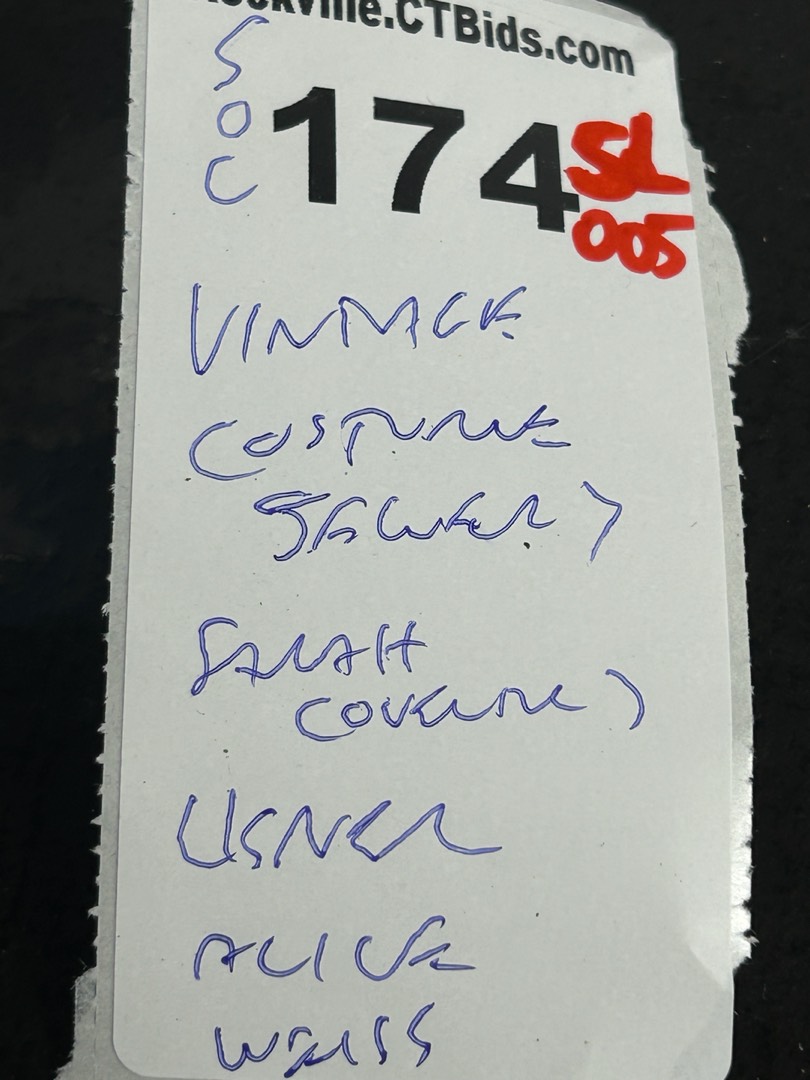 ockville.CTBids.com
SOC
174
SL
005
VINTAGE
COSTUME
JEWELRY
SARAH
COVENTRY
LISNER
ALICE
WEISS